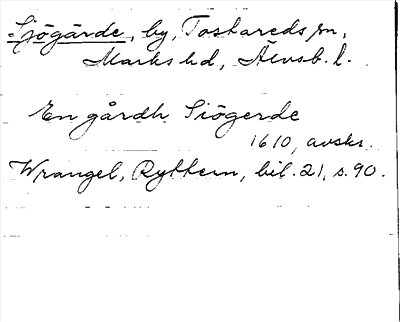 Sjögärde, by, Tostareds sn,
Marks hd, Älvsb. l.
En gårdh Siögerde
1610, avskr.
Wrangel, Ryttern, bil. 21, s. 90.